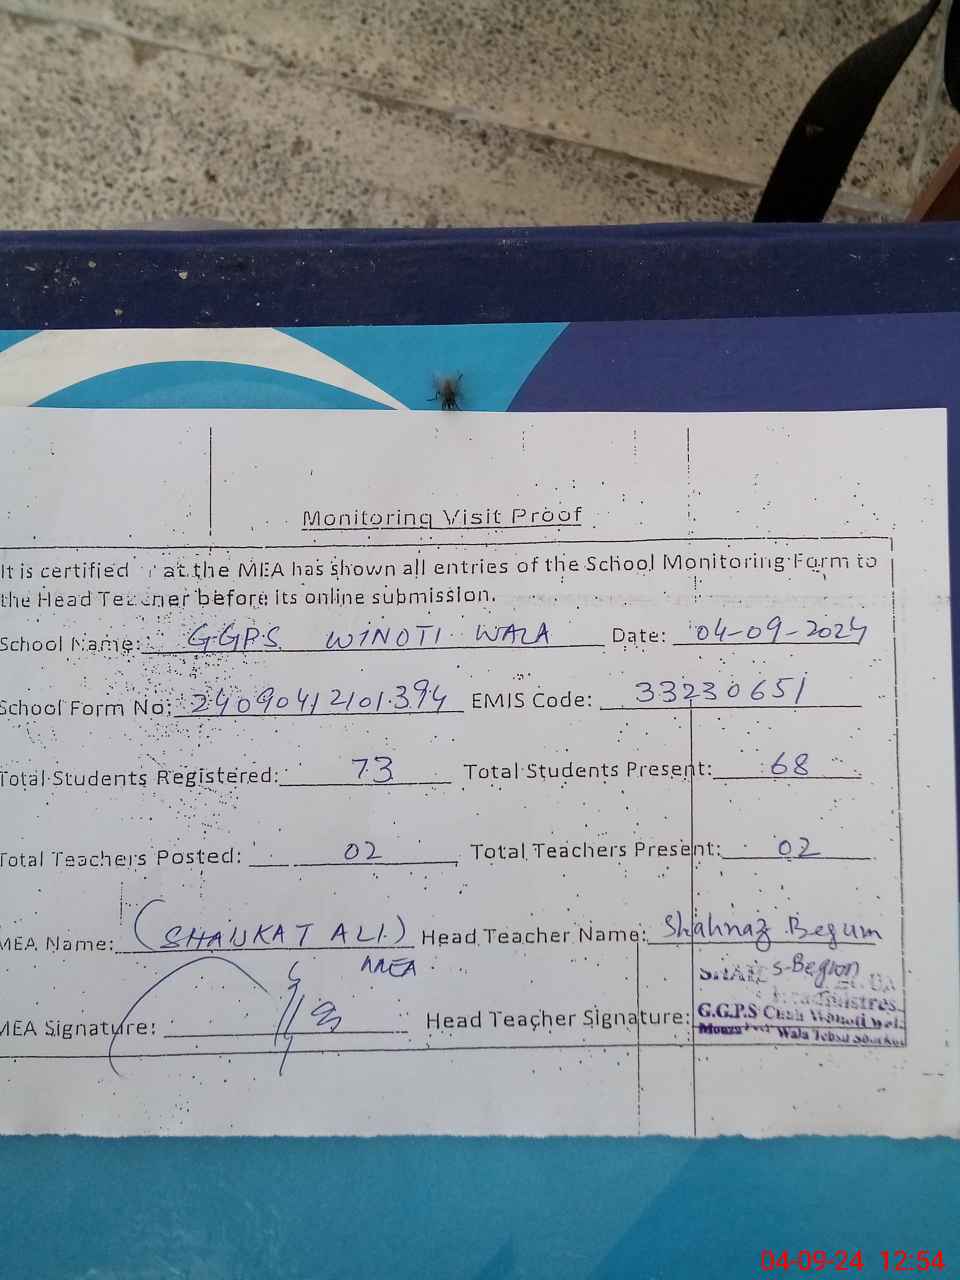 Monitoring Visit Proof
It is certified at the MEA has shown all entries of the School Monitoring Form to
the Head Teacher before its online submission.
School Name: G.G.P.S. WINOTI WALA Date: 04-09-2024
School Form No: 24090412101394 EMIS Code: 33230651
Total Students Registered: 73 Total Students Present: 68
Total Teachers Posted: 02 Total Teachers Present: 02
MEA Name: (SHAUKAT ALI) Head Teacher Name: Shahnaz Begum
MEA
MEA Signature: Head Teacher Signature:
G.G.P.S Chah Wanoti Wala
Wala Tehsil
04-09-24 12:54